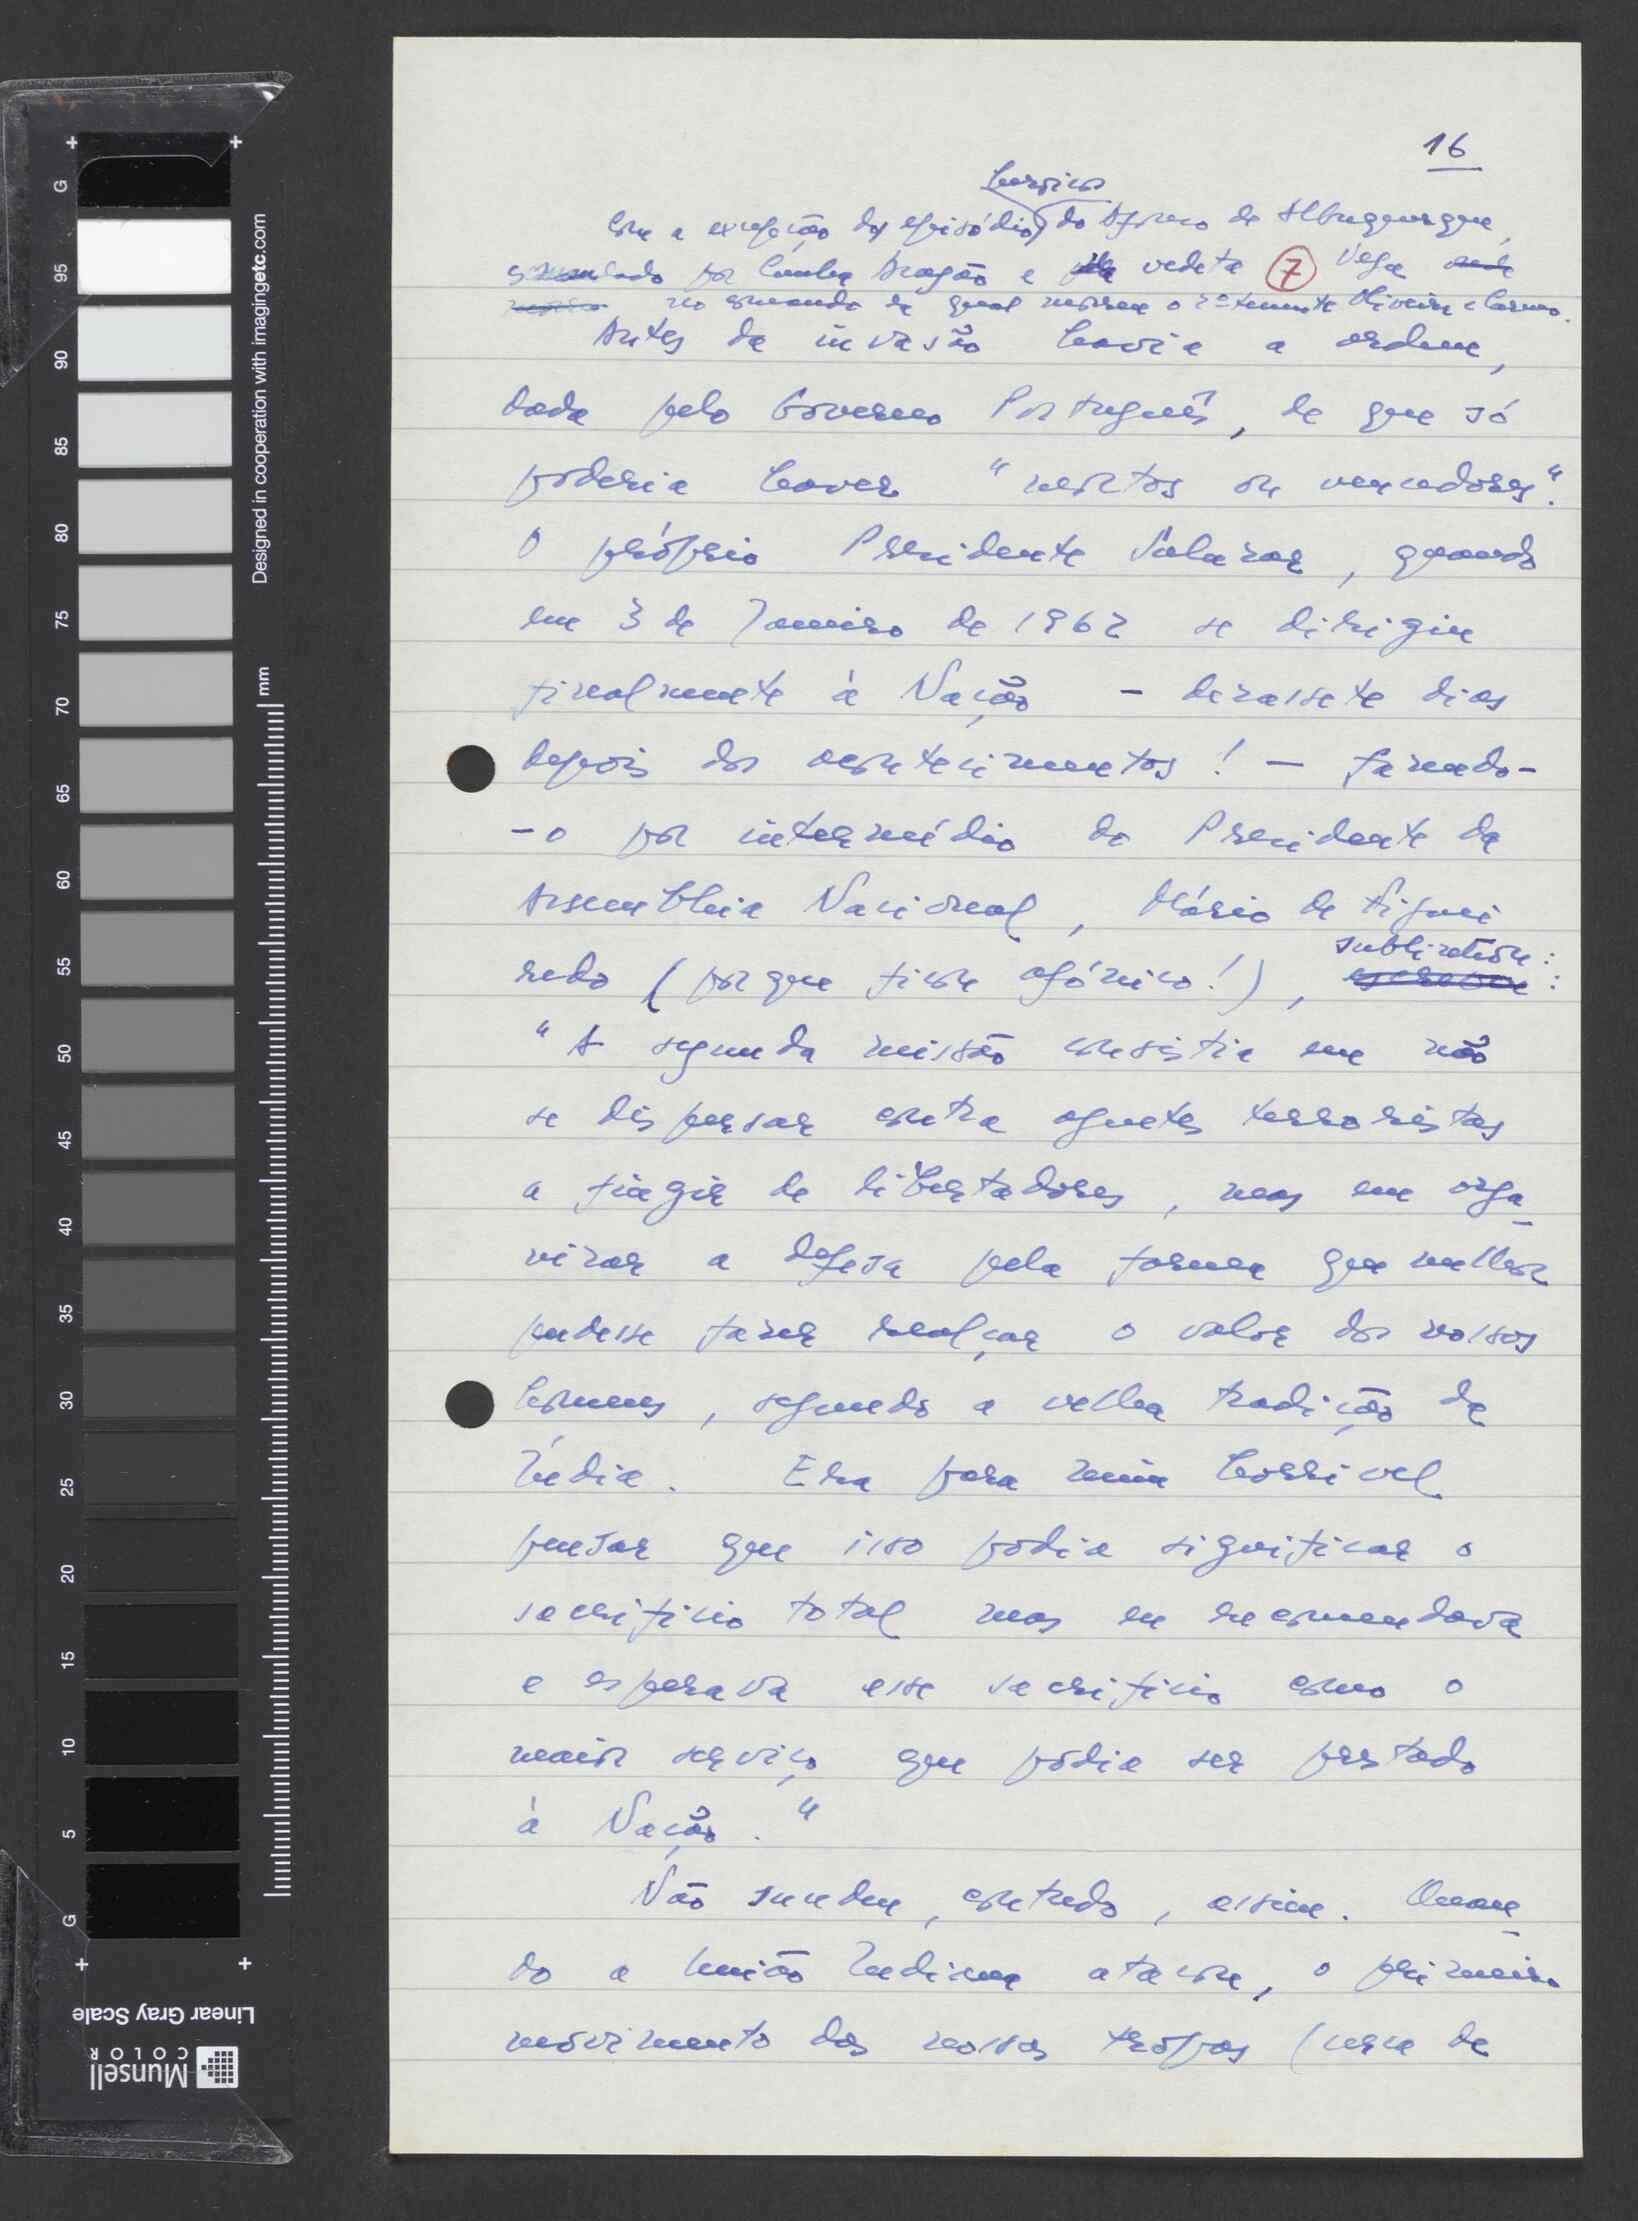 16
heroicos
Com a excepção dos episódios do Afonso de Albuquerque,
comandado por Cunha Aragão e da vedeta 7 Vega
no comando da qual morreu o 2º tenente Oliveira e Carmo.
Antes da invasão havia a ordem,
dada pelo Governo Português, de que só
poderia haver "mortos ou vencedores".
O próprio Presidente Salazar, quando
em 3 de Janeiro de 1962 se dirigiu
finalmente à Nação – dezassete dias
depois dos acontecimentos! – fazendo-
-o por intermédio do Presidente da
Assembleia Nacional, Mário de Figuei
redo (porque ficou afónico!), sublinhou:
"A segunda missão consistia em não
se dispersar contra agentes terroristas
a fingir de libertadores, mas em orga
nizar a defesa pela forma que melhor
pudesse fazer realçar o valor dos nossos
homens, segundo a velha tradição da
Índia. Era para mim horrível
pensar que isso podia significar o
sacrifício total mas eu recomendava
e esperava esse sacrifício como o
maior serviço que podia ser prestado
à Nação."
Não sucedeu, contudo, assim. Quan
do a União Indiana atacou, o primeiro
movimento das nossas tropas (cerca de
Designed in cooperation with imagingetc.com
mm
G
95
90
85
80
75
70
65
60
55
50
45
40
35
30
25
20
15
10
5
G
Linear Gray Scale
Munsell
COLOR